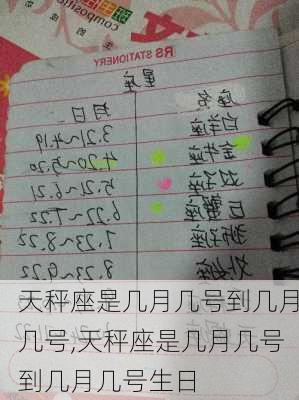 composition
RS STATIONERY
星座
3.21~4.19 白羊座
4.20~5.20 金牛座
5.21~6.21 双子座
6.22~7.22 巨蟹座
7.23~8.22 狮子座
8.23~9.22 处女座
天秤座是几月几号到几月
几号,天秤座是几月几号
到几月几号生日